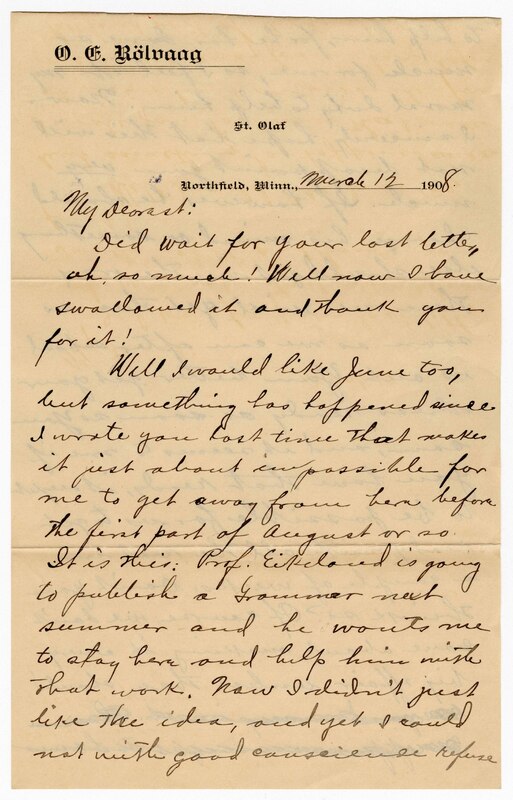 O. E. Rölvaag
St. Olaf
Northfield, Minn., March 12 1908.
My Dearest:
Did wait for your last letter,
oh, so much! Well now I have
swallowed it and thank you
for it!
Well I would like June too,
but something has happened since
I wrote you last time that makes
it just about impossible for
me to get away from here before
the first part of August or so.
It is this: Prof. Eikeland is going
to publish a Grammer next
summer and he wants me
to stay here and help him with
that work. Now I didn't just
like the idea, and yet I could
not with good consciense refuse